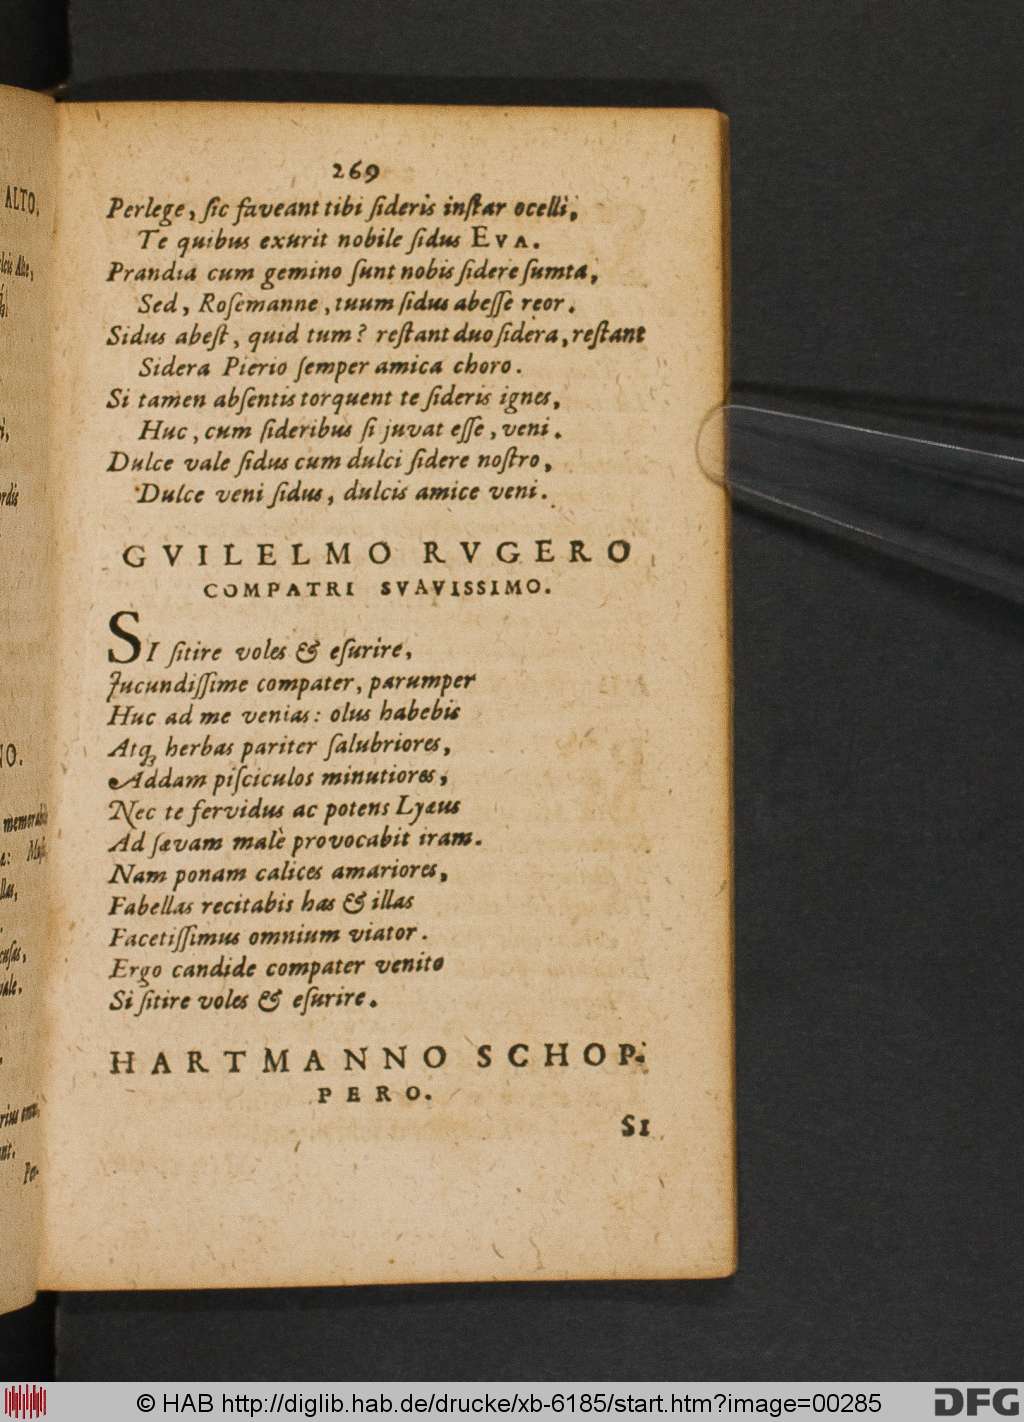 ALTO,
269
Perlege, sic faveant tibi sideris instar ocelli,
Te quibus exurit nobile sidus EVA.
Prandia cum gemino sunt nobis sidere sumta,
Sed, Rosemanne, tuum sidus abesse reor.
Sidus abest, quid tum? restant duo sidera, restant
Sidera Pierio semper amica choro.
Si tamen absentis torquent te sideris ignes,
Huc, cum sideribus si juvat esse, veni.
Dulce vale sidus cum dulci sidere nostro,
Dulce veni sidus, dulcis amice veni.
GVILELMO RVGERO
COMPATRI SVAVISSIMO.
SI sitire voles & esurire,
Jucundissime compater, parumper
Huc ad me venias: olus habebis
Atq; herbas pariter salubriores,
Addam pisciculos minutiores,
Nec te fervidus ac potens Lyæus
Ad sævam malè provocabit iram.
Nam ponam calices amariores,
Fabellas recitabis has & illas
Facetissimus omnium viator.
Ergo candide compater venito
Si sitire voles & esurire.
HARTMANNO SCHOP-
PERO.
SI
Per-
© HAB http://diglib.hab.de/drucke/xb-6185/start.htm?image=00285
DFG